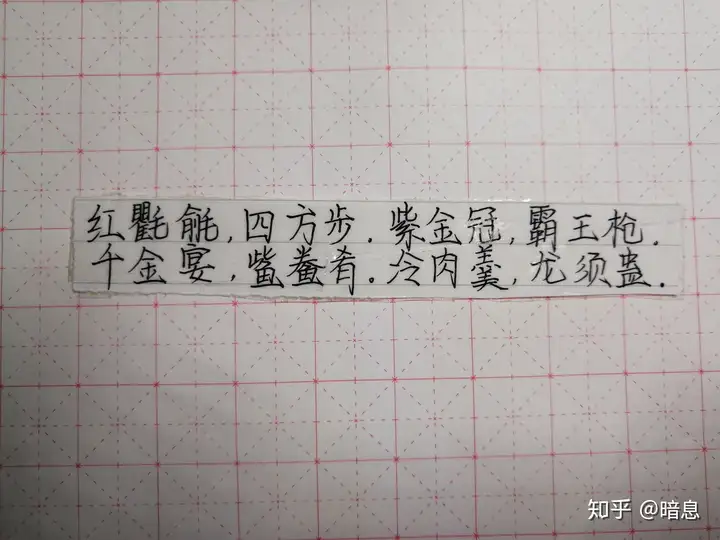 红氍毹,四方步.紫金冠,霸王枪.
千金宴,鲎鲞肴.冷肉羹,龙须蛊.
知乎 @暗息